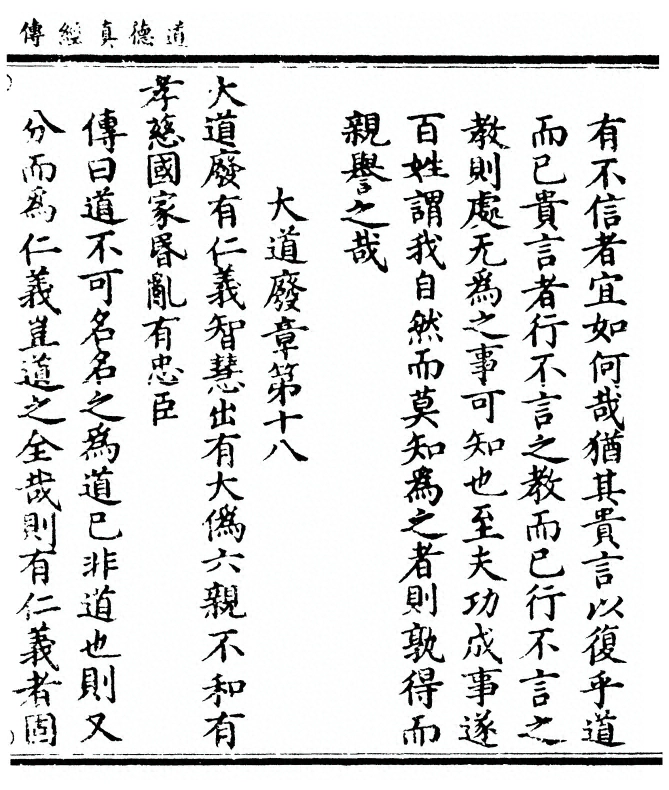 道德真經傳
有不信者宜如何哉猶其貴言以復乎道
而已貴言者行不言之教而已行不言之
教則處无為之事可知也至夫功成事遂
百姓謂我自然而莫知為之者則孰得而
親譽之哉
大道廢章第十八
大道廢有仁義智慧出有大偽六親不和有
孝慈國家昬亂有忠臣
傳曰道不可名名之為道已非道也則又
分而為仁義豈道之全哉則有仁義者固